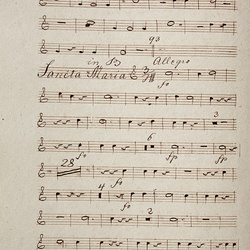 93
in B Allegro
Sancta Maria 3/4
fo
3
6
fo fp fp
28
fo
4
fo
2
fo